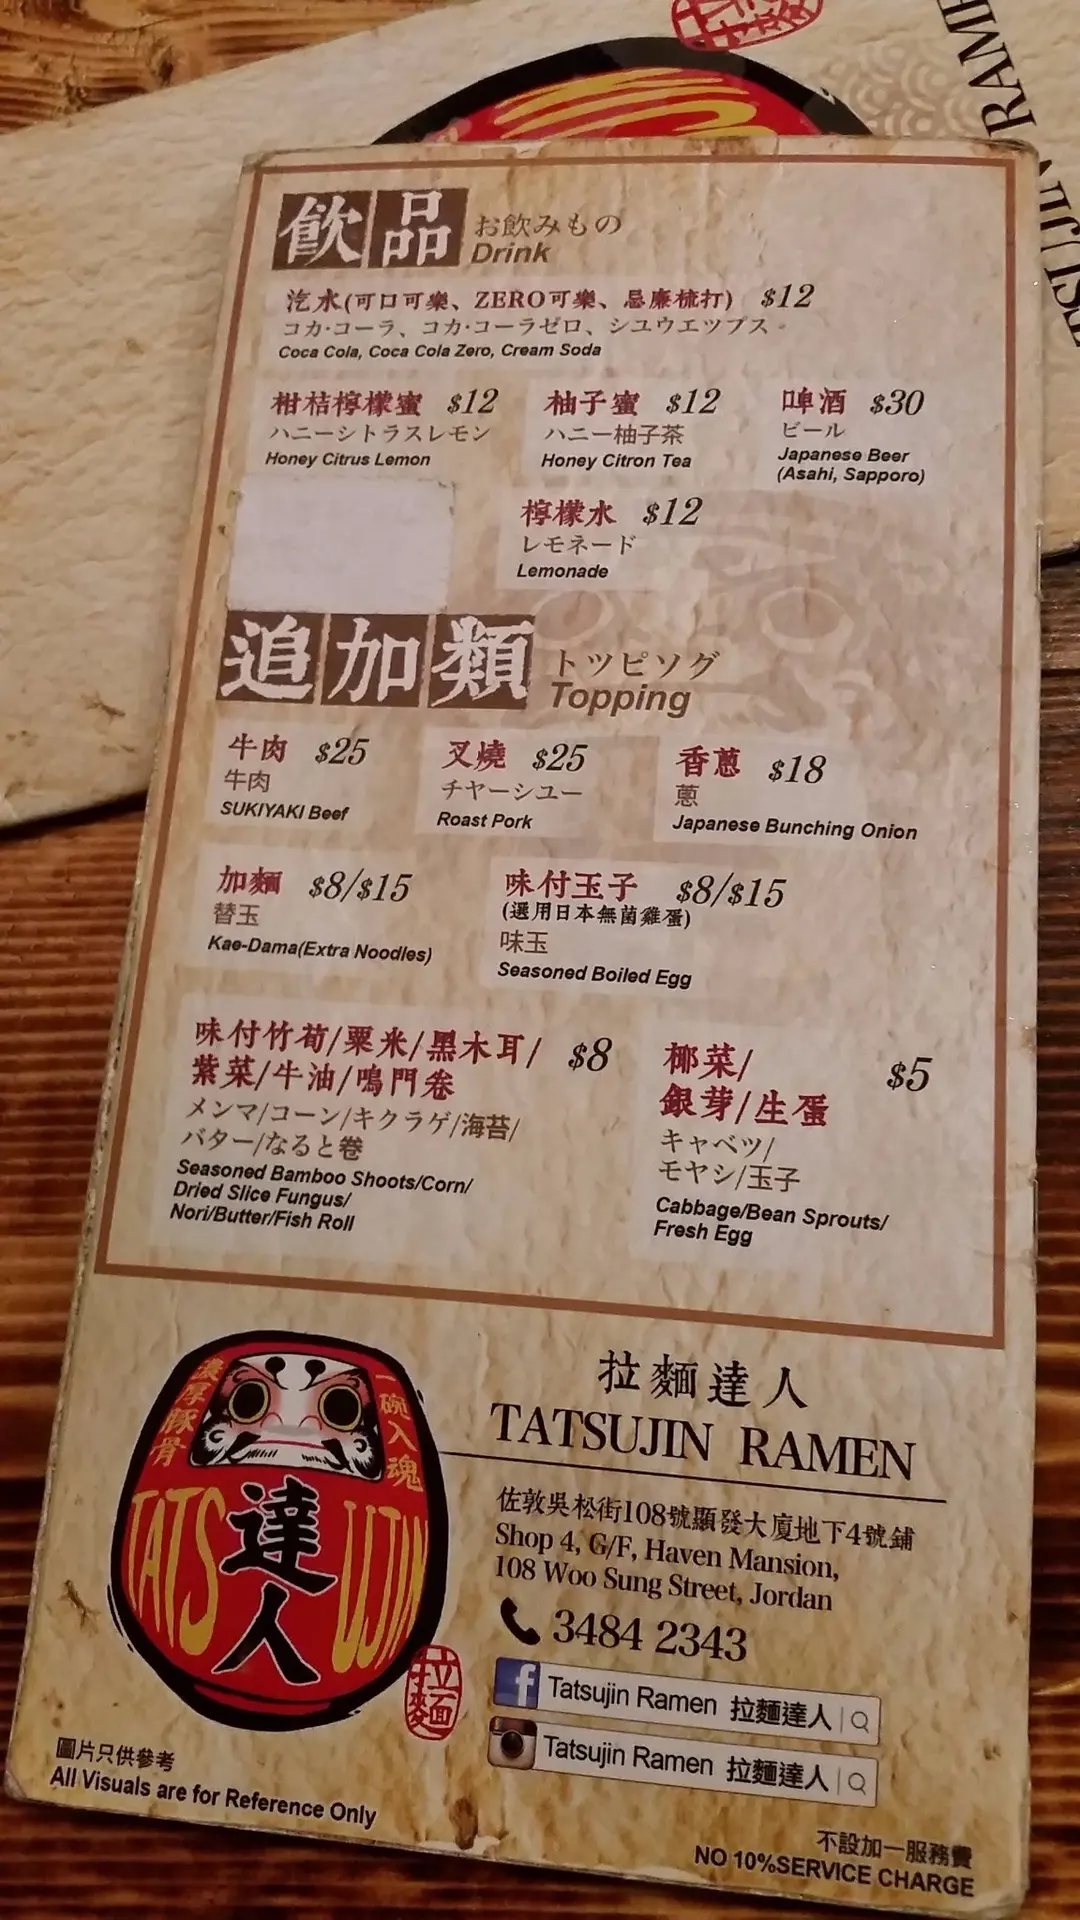 RAMEN
飲品
お飲みもの
Drink
汔水(可口可樂、ZERO可樂、忌廉梳打) $12
コカ·コーラ、コカ·コーラゼロ、シユウエツプス
Coca Cola, Coca Cola Zero, Cream Soda
柑桔檸檬蜜 $12
ハニーシトラスレモン
Honey Citrus Lemon
柚子蜜 $12
ハニー柚子茶
Honey Citron Tea
啤酒 $30
ビール
Japanese Beer
(Asahi, Sapporo)
檸檬水 $12
レモネード
Lemonade
追加類
トツピソグ
Topping
牛肉 $25
牛肉
SUKIYAKI Beef
叉燒 $25
チヤーシユー
Roast Pork
香蔥 $18
蔥
Japanese Bunching Onion
加麵 $8/$15
替玉
Kae-Dama(Extra Noodles)
味付玉子 $8/$15
(選用日本無菌雞蛋)
味玉
Seasoned Boiled Egg
味付竹荀/粟米/黑木耳/ $8
紫菜/牛油/鳴門卷
メンマ/コーン/キクラゲ/海苔/
バター/なると巻
Seasoned Bamboo Shoots/Corn/
Dried Slice Fungus/
Nori/Butter/Fish Roll
椰菜/ $5
銀芽/生蛋
キャベツ/
モヤシ/玉子
Cabbage/Bean Sprouts/
Fresh Egg
濃厚豚骨
一碗入魂
TATSUJIN
達人
拉麵
拉麵達人
TATSUJIN RAMEN
佐敦吳松街108號顯發大廈地下4號鋪
Shop 4, G/F, Haven Mansion,
108 Woo Sung Street, Jordan
3484 2343
Tatsujin Ramen 拉麵達人
Tatsujin Ramen 拉麵達人
圖片只供參考
All Visuals are for Reference Only
不設加一服務費
NO 10%SERVICE CHARGE